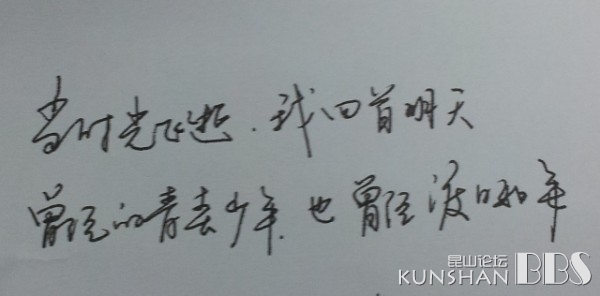 当时光飞逝，我回首明天
曾经的青春少年，也曾经渡日如年
昆山论坛
KUNSHAN BBS